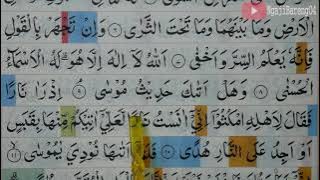 NgajiBareng04
الْاَرْضِ وَمَا بَيْنَهُمَا وَمَا تَحْتَ الثَّرٰى ٦ وَاِنْ تَجْهَرْ بِالْقَوْلِ
فَاِنَّهٗ يَعْلَمُ السِّرَّ وَاَخْفٰى ٧ اَللّٰهُ لَآ اِلٰهَ اِلَّا هُوَ لَهُ الْاَسْمَاۤءُ
الْحُسْنٰى ٨ وَهَلْ اَتٰىكَ حَدِيْثُ مُوْسٰى ٩ اِذْ رَاٰ نَارًا
فَقَالَ لِاَهْلِهِ امْكُثُوْٓا اِنِّيْٓ اٰنَسْتُ نَارًا لَّعَلِّيْٓ اٰتِيْكُمْ مِّنْهَا بِقَبَسٍ
اَوْ اَجِدُ عَلَى النَّارِ هُدًى ١٠ فَلَمَّآ اَتٰىهَا نُوْدِيَ يٰمُوْسٰى ١١